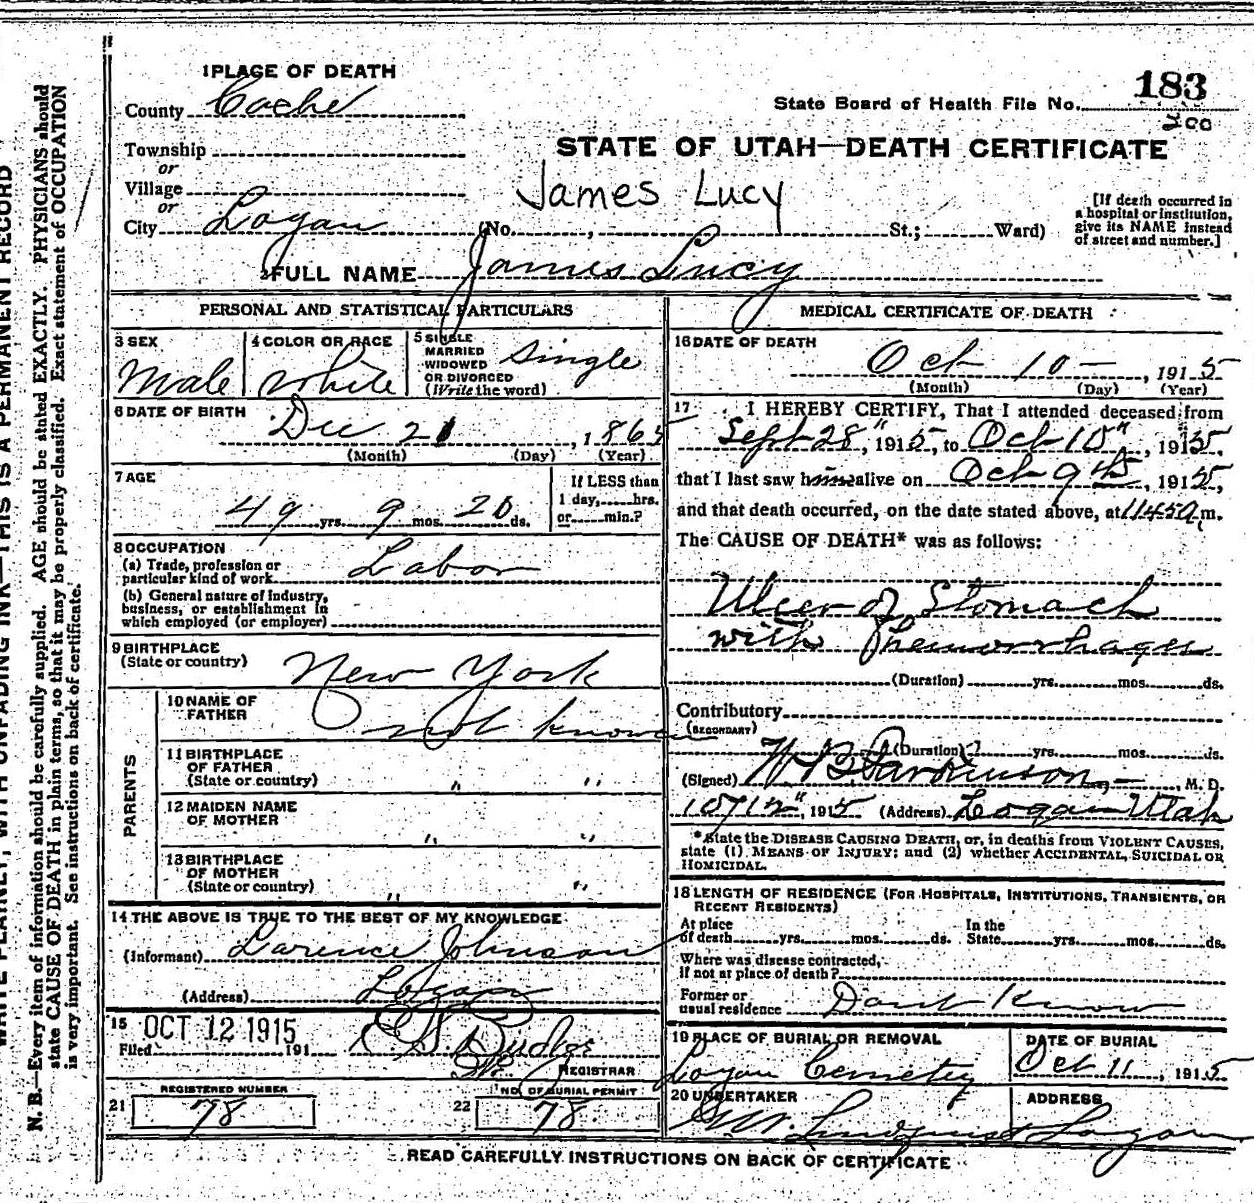 WRITE PLAINLY, WITH UNFADING INK—THIS IS A PERMANENT RECORD
N. B.—Every item of information should be carefully supplied. AGE should be stated EXACTLY. PHYSICIANS should
state CAUSE OF DEATH in plain terms, so that it may be properly classified. Exact statement of OCCUPATION
is very important. See instructions on back of certificate.
1 PLACE OF DEATH
County Cache
Township
or
Village
or
City Logan
State Board of Health File No. 183
200
STATE OF UTAH—DEATH CERTIFICATE
James Lucy
(No. , St.; Ward)
[If death occurred in
a hospital or institution,
give its NAME instead
of street and number.]
2 FULL NAME James Lucy
PERSONAL AND STATISTICAL PARTICULARS
3 SEX
Male
4 COLOR OR RACE
White
5 SINGLE
MARRIED
WIDOWED
OR DIVORCED
(Write the word)
Single
6 DATE OF BIRTH
Dec 21, 1865
(Month) (Day) (Year)
7 AGE
49 yrs. 9 mos. 20 ds.
If LESS than
1 day, hrs.
or min.?
8 OCCUPATION
(a) Trade, profession or
particular kind of work Labor
(b) General nature of industry,
business, or establishment in
which employed (or employer)
9 BIRTHPLACE
(State or country)
New York
PARENTS
10 NAME OF
FATHER
not known
11 BIRTHPLACE
OF FATHER
(State or country) " "
12 MAIDEN NAME
OF MOTHER
" "
13 BIRTHPLACE
OF MOTHER
(State or country)
" "
14 THE ABOVE IS TRUE TO THE BEST OF MY KNOWLEDGE
(Informant) Larence Johnson
(Address) Logan
15 OCT 12 1915
Filed 191
REGISTRAR
REGISTERED NUMBER
21 78
NO. OF BURIAL PERMIT
22 78
MEDICAL CERTIFICATE OF DEATH
16 DATE OF DEATH
Oct 10 — , 1915
(Month) (Day) (Year)
17 I HEREBY CERTIFY, That I attended deceased from
Sept 28", 1915, to Oct 10", 1915,
that I last saw him alive on Oct 9th, 1915,
and that death occurred, on the date stated above, at 1145 a.m.
The CAUSE OF DEATH* was as follows:
Ulcer of Stomach
with Hemorrhages
(Duration) yrs. mos. ds.
Contributory
(SECONDARY)
(Duration) yrs. mos. ds.
(Signed) W B Parkinson, M. D.
10/12", 1915 (Address) Logan Utah
*State the DISEASE CAUSING DEATH, or, in deaths from VIOLENT CAUSES,
state (1) MEANS OF INJURY; and (2) whether ACCIDENTAL, SUICIDAL OR
HOMICIDAL.
18 LENGTH OF RESIDENCE (FOR HOSPITALS, INSTITUTIONS, TRANSIENTS, OR
RECENT RESIDENTS)
At place In the
of death yrs. mos. ds. State yrs. mos. ds.
Where was disease contracted,
if not at place of death?
Former or
usual residence Dont Know
19 PLACE OF BURIAL OR REMOVAL
Logan Cemetery
DATE OF BURIAL
Oct 11, 1915
20 UNDERTAKER
Lundquist
ADDRESS
Logan
READ CAREFULLY INSTRUCTIONS ON BACK OF CERTIFICATE